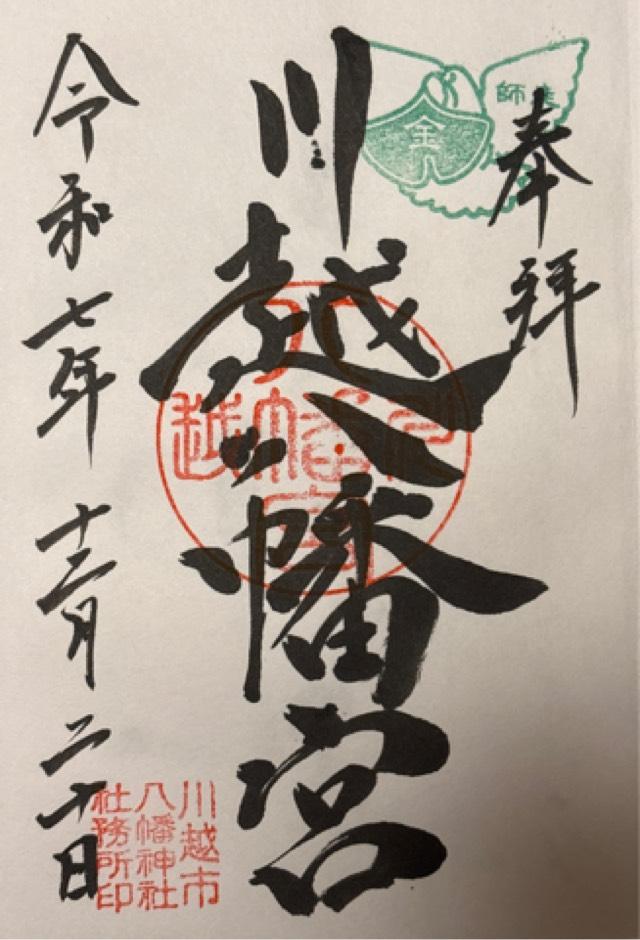 奉拝
師走
金
川越八幡宮
川越市
八幡神社
社務所印
令和七年 十二月 二十日